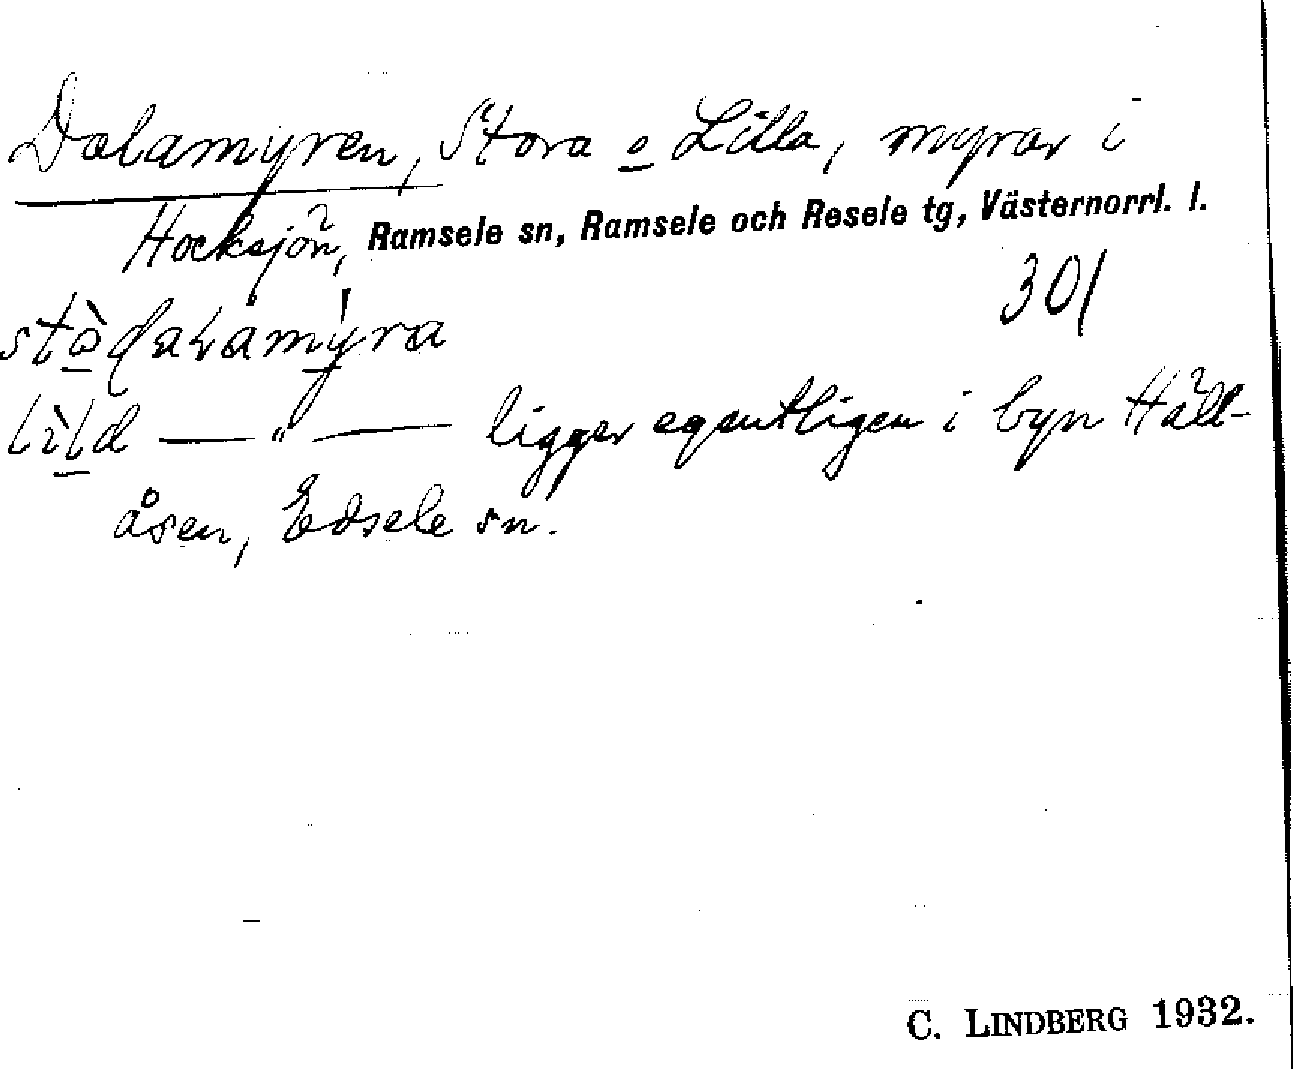 Dalamyren, Stora o Lilla, myrar i
Hocksjön, Ramsele sn, Ramsele och Resele tg, Västernorrl. l.
301
lìld — " — ligger egentligen i byn Häll-
åsen, Edsele sn.
C. LINDBERG 1932.